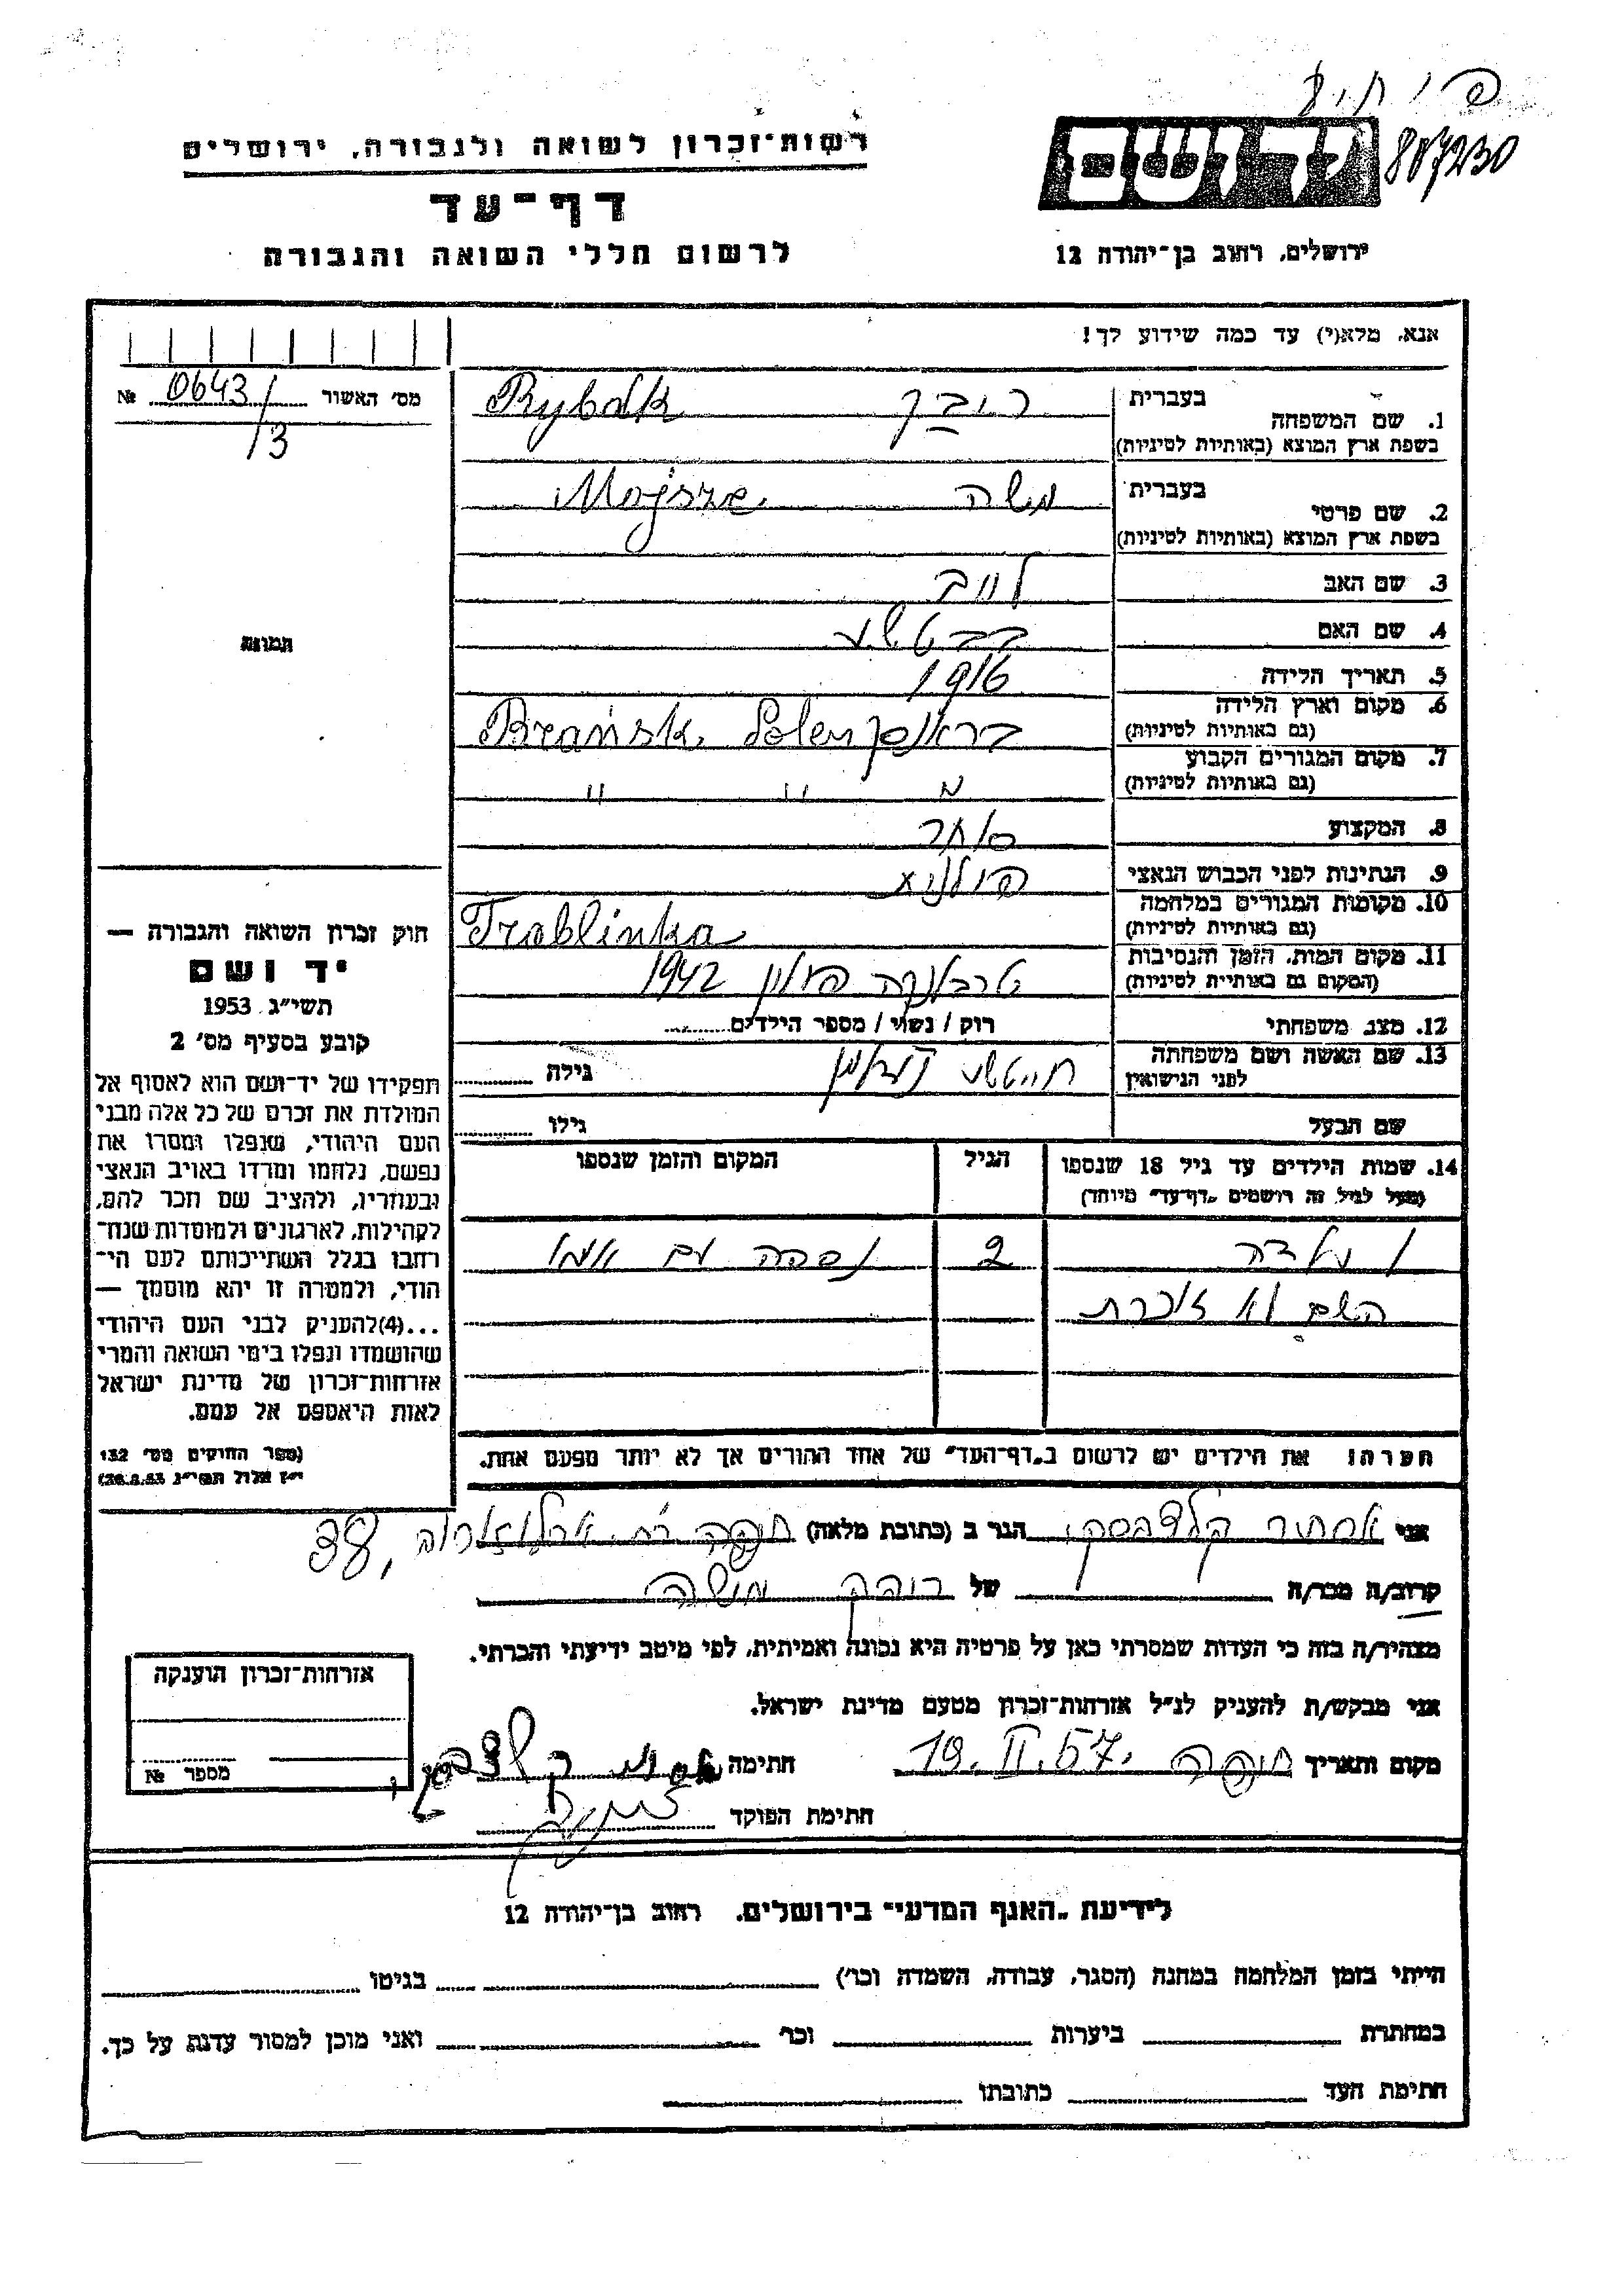 רשות־זכרון לשואה ולגבורה, ירושלים
דף־עד
לרשום חללי השואה והגבורה
887230
ירושלים, רחוב בן־יהודה 12
אנא, מלא(י) עד כמה שידוע לך!
מס' האשור 0643/3 №
תמונה
1. שם המשפחה בעברית
Rybak
בשפת ארץ המוצא (באותיות לטיניות)
2. שם פרטי בעברית משה
Mojsze
בשפת ארץ המוצא (באותיות לטיניות)
3. שם האב לייב
4. שם האם
5. תאריך הלידה 1916
6. מקום וארץ הלידה בראנסק Brańsk Polen
(גם באותיות לטיניות)
7. מקום המגורים הקבוע
(גם באותיות לטיניות)
8. המקצוע סוחר
9. הנתינות לפני הכבוש הנאצי פולנית
10. מקומות המגורים במלחמה
(גם באותיות לטיניות)
Trablinka
11. מקום המות, הזמן והנסיבות 1942
(המקום גם באותיות לטיניות)
12. מצב משפחתי רוק / נשוי / מספר הילדים
13. שם האשה ושם משפחתה
לפני הנישואין
גילה
שם הבעל גילו
14. שמות הילדים עד גיל 18 שנספו הגיל המקום והזמן שנספו
(מעל לגיל זה רושמים „דף־עד" מיוחד)
1 ילדה 2 נספה עם אמו
השם לא זוכרת
הערה: את הילדים יש לרשום ב„דף־העד" של אחד ההורים אך לא יותר מפעם אחת.
חוק זכרון השואה והגבורה —
יד ושם
תשי"ג 1953
קובע בסעיף מס' 2
תפקידו של יד־ושם הוא לאסוף אל
המולדת את זכרם של כל אלה מבני
העם היהודי, שנפלו ומסרו את
נפשם, נלחמו ומרדו באויב הנאצי
ובעוזריו, ולהציב שם וזכר להם,
לקהילות, לארגונים ולמוסדות שנח־
רבו בגלל השתייכותם לעם הי־
הודי, ולמטרה זו יהא מוסמך —
...(4) להעניק לבני העם היהודי
שהושמדו ונפלו בימי השואה והמרי
אזרחות־זכרון של מדינת ישראל
לאות היאספם אל עמם.
(ספר החוקים מס' 132
י"ז אלול תשי"ג 28.8.53)
אני אסתר הגר ב (כתובת מלאה) חיפה רח. ארלוזורוב 38,
קרוב/ה מכר/ה של משה
מצהיר/ה בזה כי העדות שמסרתי כאן על פרטיה היא נכונה ואמיתית, לפי מיטב ידיעתי והכרתי.
אני מבקש/ת להעניק לנ"ל אזרחות־זכרון מטעם מדינת ישראל.
מקום ותאריך חיפה 19.II.57. חתימה
חתימת הפוקד
אזרחות־זכרון הוענקה
מספר №
לידיעת „האגף המדעי" בירושלים, רחוב בן־יהודה 12
הייתי בזמן המלחמה במחנה (הסגר, עבודה, השמדה וכו') בגיטו
במחתרת ביערות וכו' ואני מוכן למסור עדות על כך.
חתימת העד כתובתו